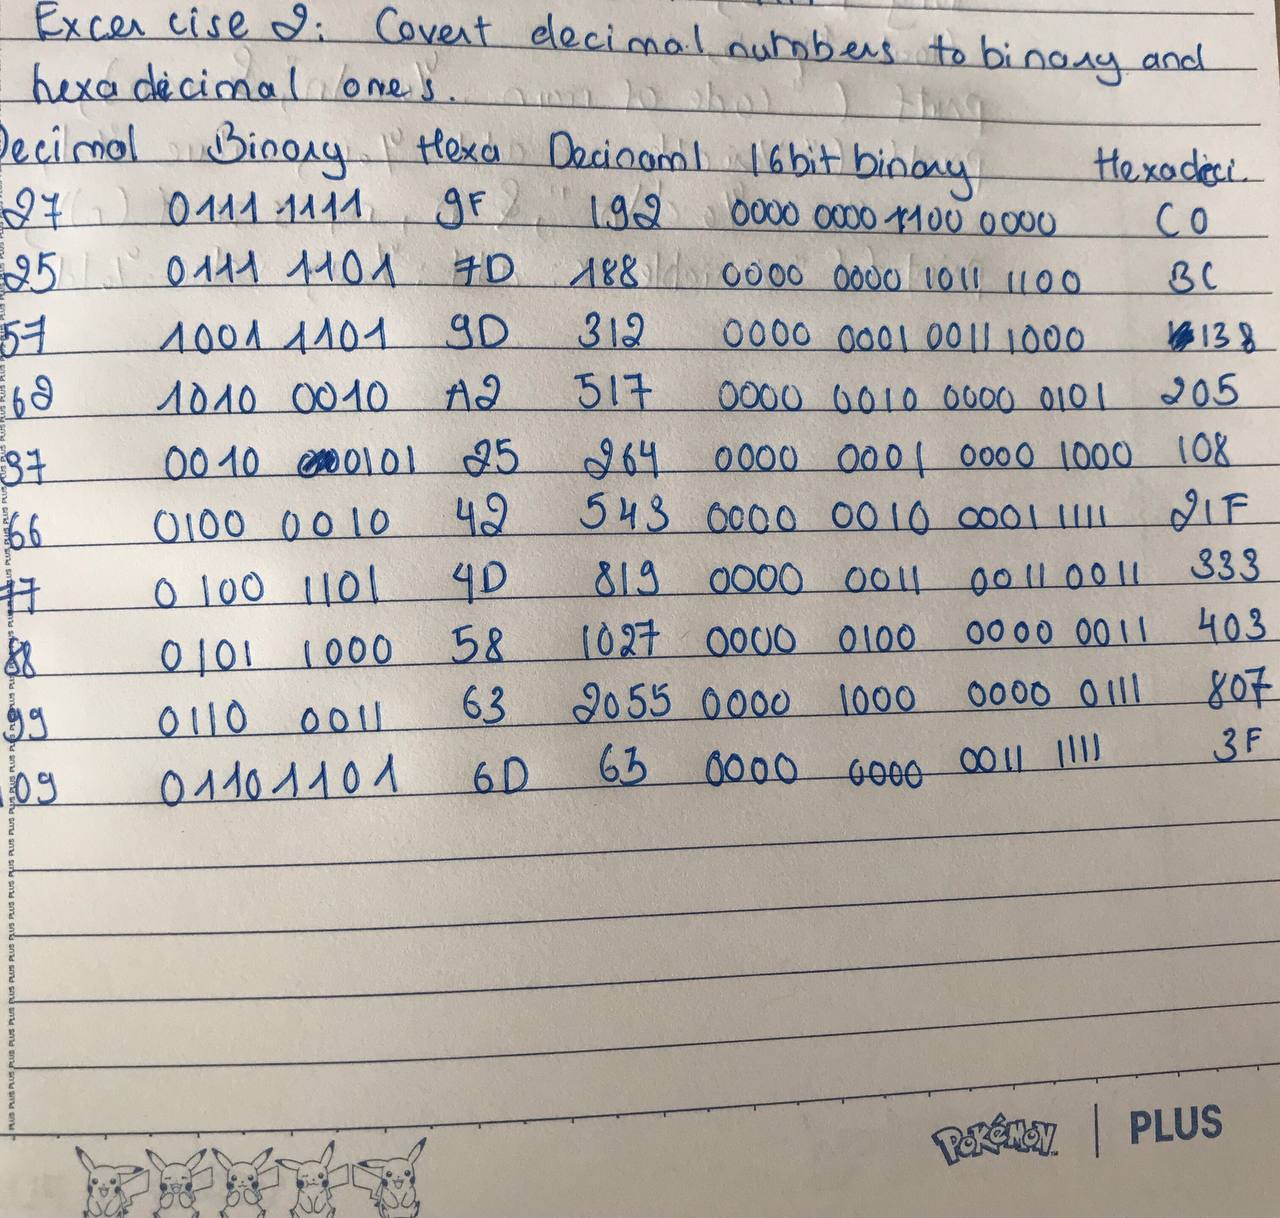 Excercise 2: Covert decimal numbers to binary and
hexadecimal ones.
Decimal Binary Hexa Decinaml 16bit binary Hexadeci.
27 0111 1111 9F 192 0000 0000 1100 0000 C0
25 0111 1101 7D 188 0000 0000 1011 1100 BC
57 1001 1101 9D 312 0000 0001 0011 1000 138
62 1010 0010 A2 517 0000 0010 0000 0101 205
37 0010 0101 25 264 0000 0001 0000 1000 108
66 0100 0010 42 543 0000 0010 0001 1111 21F
77 0100 1101 4D 819 0000 0011 0011 0011 333
88 0101 1000 58 1027 0000 0100 0000 0011 403
99 0110 0011 63 2055 0000 1000 0000 0111 807
09 0110 1101 6D 63 0000 0000 0011 1111 3F
POKéMON | PLUS